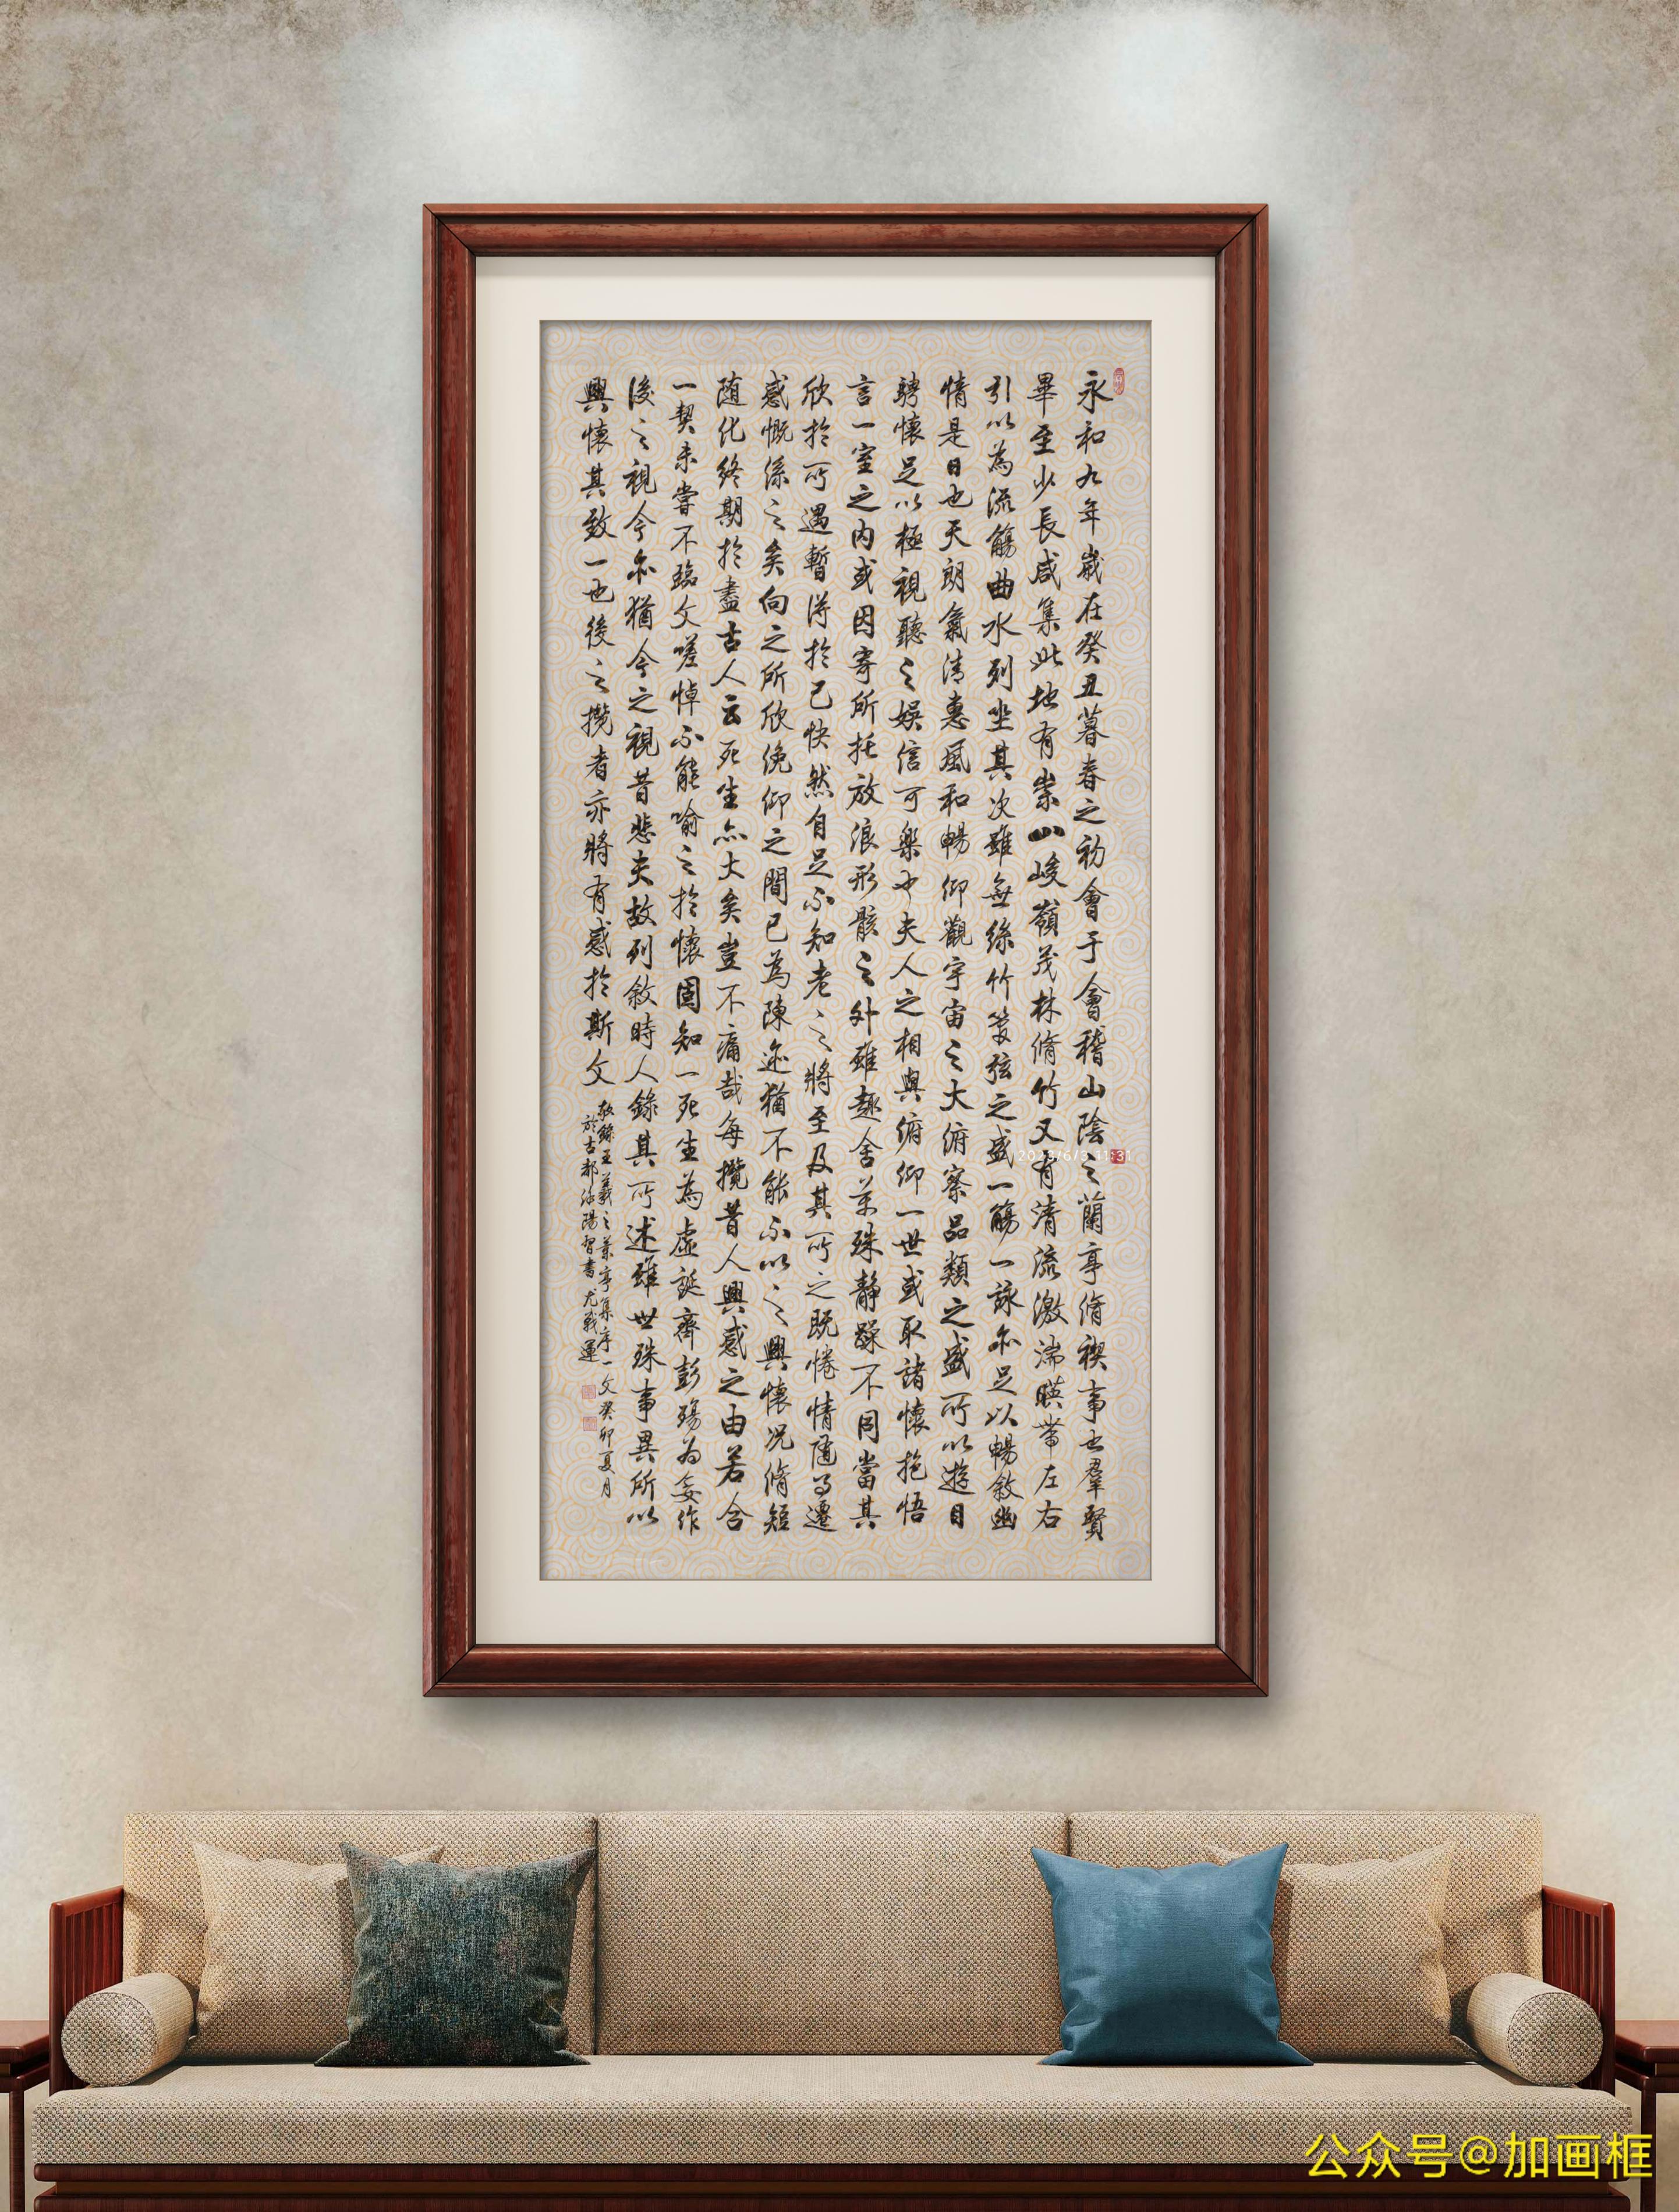 永和九年歲在癸丑暮春之初會于會稽山陰之蘭亭脩禊事也羣賢
畢至少長咸集此地有崇山峻嶺茂林脩竹又有清流激湍暎帶左右
引以為流觴曲水列坐其次雖無絲竹管弦之盛一觴一詠亦足以暢敘幽
情是日也天朗氣清惠風和暢仰觀宇宙之大俯察品類之盛所以遊目
騁懷足以極視聽之娛信可樂也夫人之相與俯仰一世或取諸懷抱悟
言一室之內或因寄所托放浪形骸之外雖趣舍萬殊静躁不同當其
欣於所遇暫得於己快然自足不知老之將至及其所之既惓情隨事遷
感慨係之矣向之所欣俛仰之間已為陳迹猶不能不以之興懷况脩短
随化終期於盡古人云死生亦大矣豈不痛哉每攬昔人興感之由若合
一契未嘗不臨文嗟悼不能喻之於懷固知一死生為虛誕齊彭殤為妄作
後之視今亦猶今之視昔悲夫故列敘時人錄其所述雖世殊事異所以
興懷其致一也後之攬者亦將有感於斯文
敬錄王羲之蘭亭集序一文癸卯夏月
於古都洛陽習書尤戰運
2023/6/3 11:31
公众号@加画框